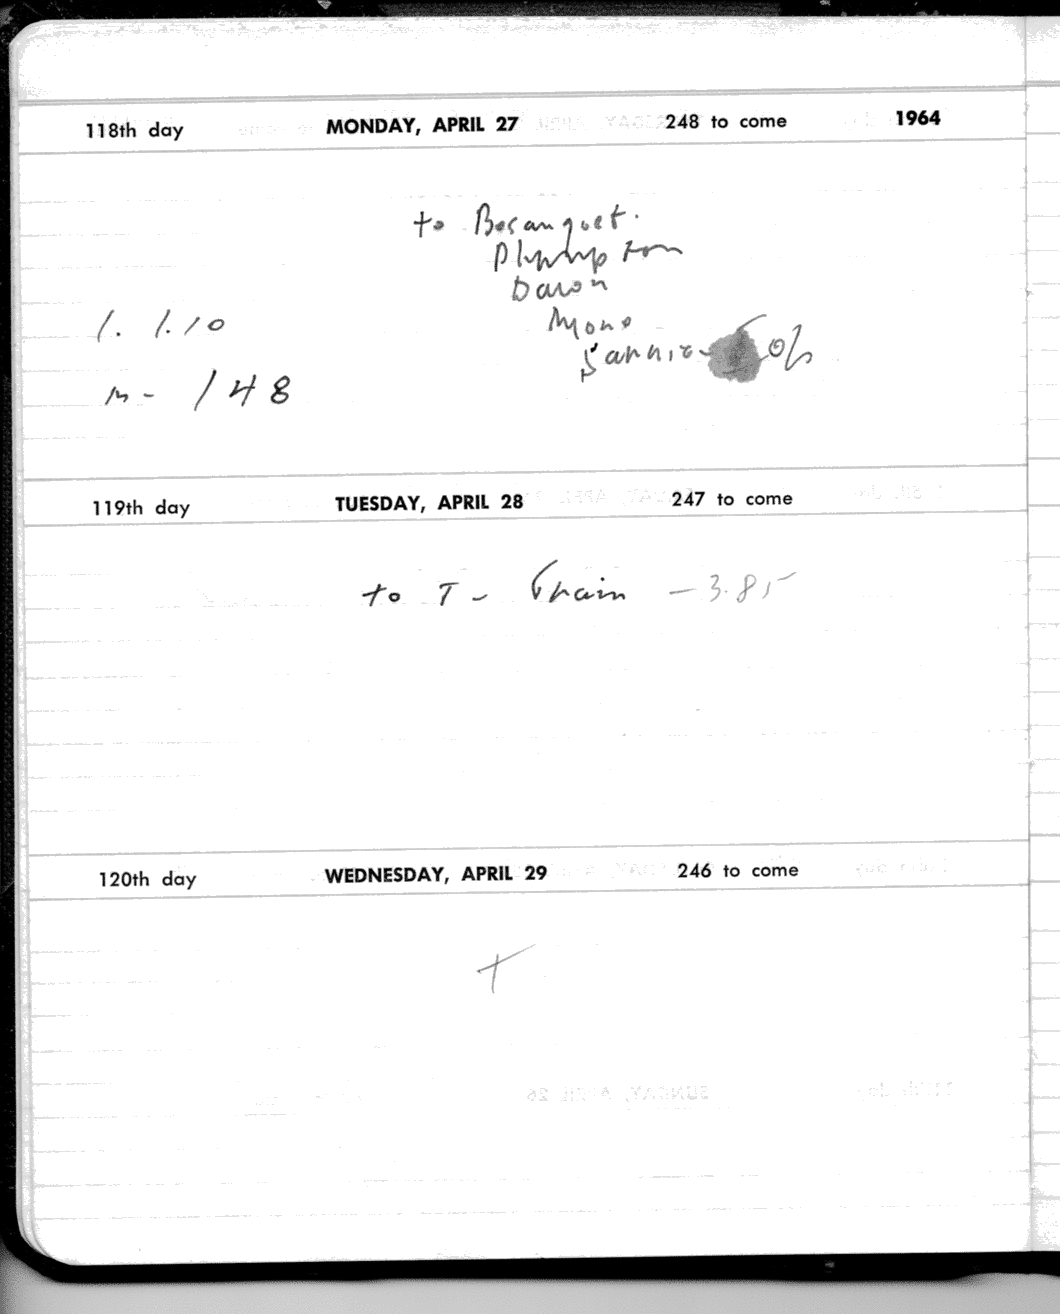 118th day MONDAY, APRIL 27 248 to come 1964
to Bosanquet.
Plympton
Daron
Mono
Sarnia-
1. 1.10
m- 148
119th day TUESDAY, APRIL 28 247 to come
to T- Train - 3.85
120th day WEDNESDAY, APRIL 29 246 to come